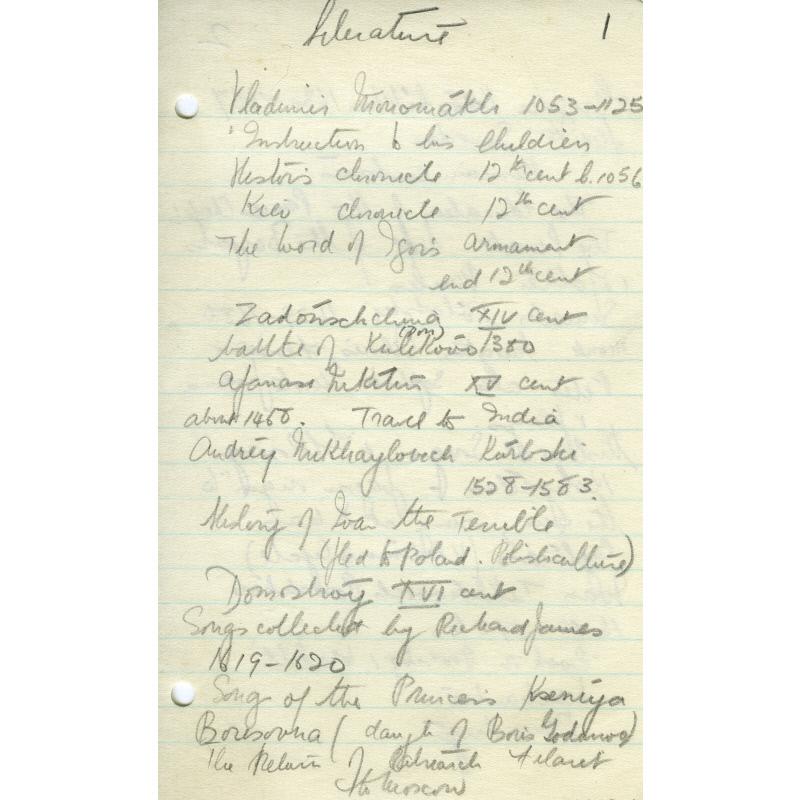 Literature 1
Vladimir Monomákh 1053-1125
'Instruction to his Children
Nestor's chronicle 12th cent b. 1056
Kiev chronicle 12th cent
The Word of Igor's armament
end 12th cent
Zadónschchina XIV cent
battle of Kulikovo (Don) 1380
Afanasi Nikitin XV cent
about 1460. Travel to India
Andréy Mikhaylovich Kúrbski
1528-1583.
History of Ivan the Terrible
(fled to Poland. Polish culture)
Domostroy XVI cent
Songs collected by Richard James
1619-1620
Song of the Princess Kseniya
Borisovna (daugh of Boris Godunov)
The Return of Patriarch Filaret
to Moscow